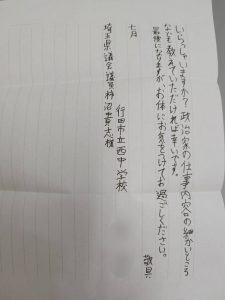 いらっしゃいますか?政治家の仕事内容の細かいところ
なども教えていただければ幸いです。
最後になりますが、お体にお気をつけてお過ごしください。
敬具
七月
行田市立西中学校
埼玉県議会議員柿沼貴志様